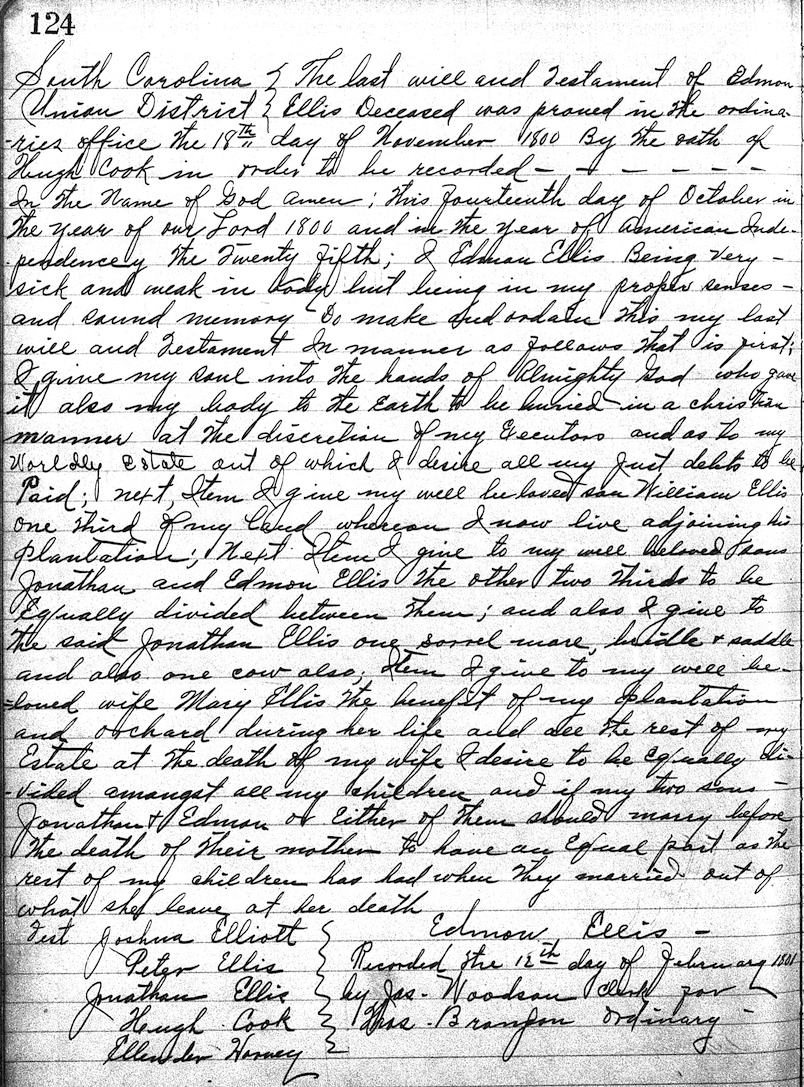 124
South Carolina } The last will and Testament of Edmon
Union District } Ellis Deceased was proved in the ordina-
-ries office the 18th day of November 1800 By the oath of
Hugh Cook in order to be recorded - - - - - -
In the Name of God amen; this fourteenth day of October in
the year of our Lord 1800 and in the year of American Inde-
-pendency the Twenty fifth; I Edmon Ellis Being very -
sick and weak in body but being in my proper senses -
and sound memory Do make and ordain this my last
will and Testament In manner as follows that is first;
I give my soul into the hands of Almighty God who gave
it also my body to the Earth to be buried in a christian
manner at the discretion of my Executors and as to my
Worldly Estate out of which I desire all my Just debts to be
Paid; next, Item I give my well beloved son William Ellis
one third of my land whereon I now live adjoining his
plantation; Next Item I give to my well beloved sons
Jonathan and Edmon Ellis the other two thirds to be
Equally divided between them; and also I give to
the said Jonathan Ellis one sorrel mare, bridle & saddle
and also one cow also, Item I give to my well be-
=loved wife Mary Ellis the benefit of my plantation
and orchard during her life and all the rest of my
Estate at the death of my wife I desire to be Equally di-
-vided amongst all my children and if my two sons -
Jonathan & Edmon or Either of them should marry before
the death of their mother to have an Equal part as the
rest of my children has had when they married out of
what she leave at her death
Test Joshua Elliott } Edmon Ellis -
Peter Ellis } Recorded the 12th day of February 1801
Jonathan Ellis } by Jas. Woodson clerk for
Hugh Cook } Thos. Brandon Ordinary -
Ellender Harvey }